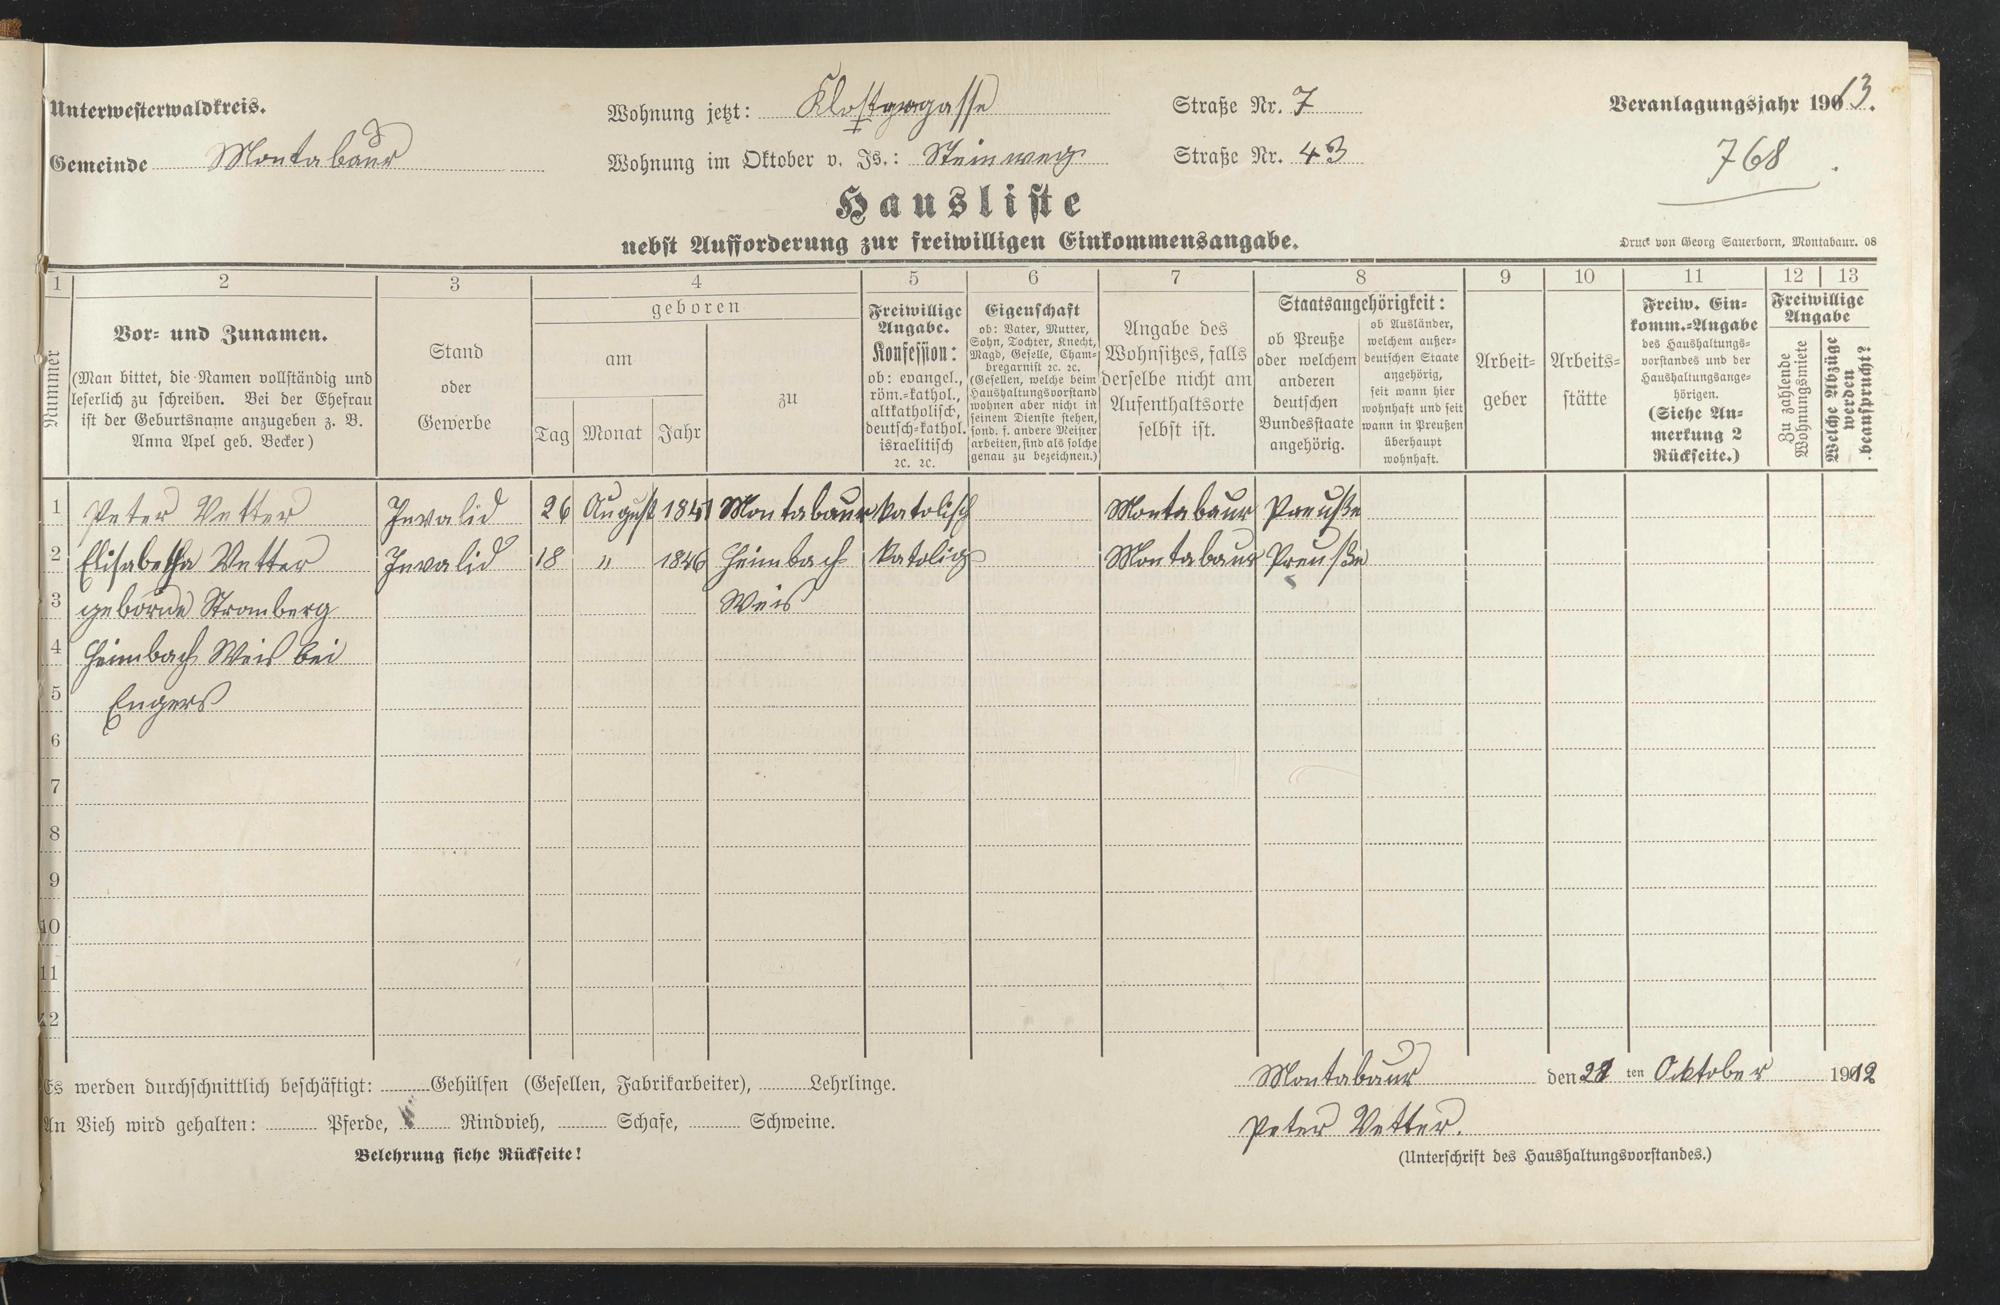 Unterwesterwaldkreis.
Wohnung jetzt: Klostergasse Straße Nr. 7
Veranlagungsjahr 1913.
Gemeinde Montabaur
Wohnung im Oktober v. Js.: Steinweg Straße Nr. 43
768.
Hausliste
nebst Aufforderung zur freiwilligen Einkommensangabe.
Druck von Georg Sauerborn, Montabaur. 08
1 2 3 4 5 6 7 8 9 10 11 12 13
Nummer
Vor- und Zunamen.
(Man bittet, die Namen vollständig und
leserlich zu schreiben. Bei der Ehefrau
ist der Geburtsname anzugeben z. B.
Anna Apel geb. Becker)
Stand
oder
Gewerbe
geboren
am
Tag Monat Jahr
zu
Freiwillige
Angabe.
Konfession:
ob: evangel.,
röm.-kathol.,
altkatholisch,
deutsch-kathol.
israelitisch
2c. 2c.
Eigenschaft
ob: Vater, Mutter,
Sohn, Tochter, Knecht,
Magd, Geselle, Cham-
bregarnist 2c. 2c.
(Gesellen, welche beim
Haushaltungsvorstand
wohnen aber nicht in
seinem Dienste stehen,
sond. f. andere Meister
arbeiten, sind als solche
genau zu bezeichnen.)
Angabe des
Wohnsitzes, falls
derselbe nicht am
Aufenthaltsorte
selbst ist.
Staatsangehörigkeit:
ob Preuße
oder welchem
anderen
deutschen
Bundesstaate
angehörig.
ob Ausländer,
welchem außer-
deutschen Staate
angehörig,
seit wann hier
wohnhaft und seit
wann in Preußen
überhaupt
wohnhaft.
Arbeit-
geber
Arbeits-
stätte
Freiw. Ein-
komm.-Angabe
des Haushaltungs-
vorstandes und der
Haushaltungsange-
hörigen.
(Siehe An-
merkung 2
Rückseite.)
Freiwillige
Angabe
Zu zahlende
Wohnungsmiete
Welche Abzüge
werden
beansprucht?
1 Peter Vetter Invalid 26 August 1841 Montabaur katolisch Montabaur Preuße
2 Elisabetha Vetter Invalid 18 " 1846 Heimbach katolig Montabaur Preuße
3 geborne Stromberg Weis
4 Heimbach Weis bei
5 Engers
6
7
8
9
10
11
12
Es werden durchschnittlich beschäftigt: Gehülfen (Gesellen, Fabrikarbeiter), Lehrlinge.
Montabaur den 28 ten Ocktober 1912
An Vieh wird gehalten: Pferde, Rindvieh, Schafe, Schweine.
Peter Vetter.
Belehrung siehe Rückseite!
(Unterschrift des Haushaltungsvorstandes.)